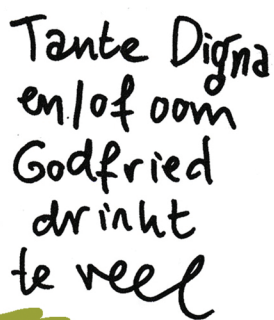 Tante Digna
en/of oom
Godfried
drinkt
te veel